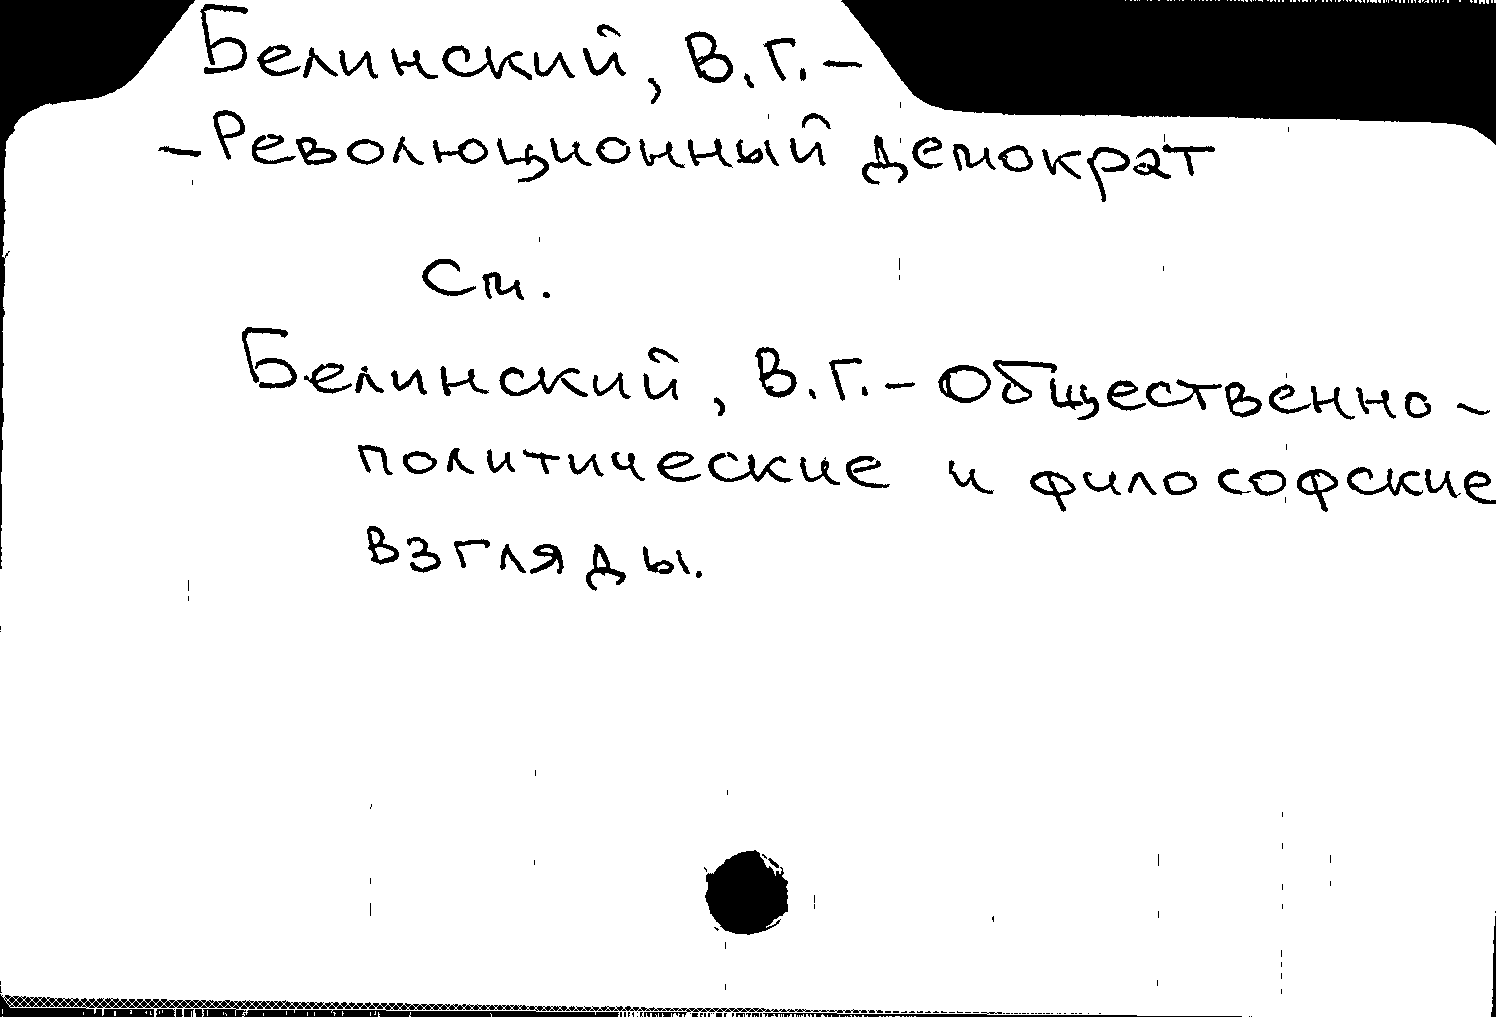 Белинский, В.Г. –
– Революционный демократ
См.
Белинский, В.Г. – Общественно –
политические и философские
взгляды.